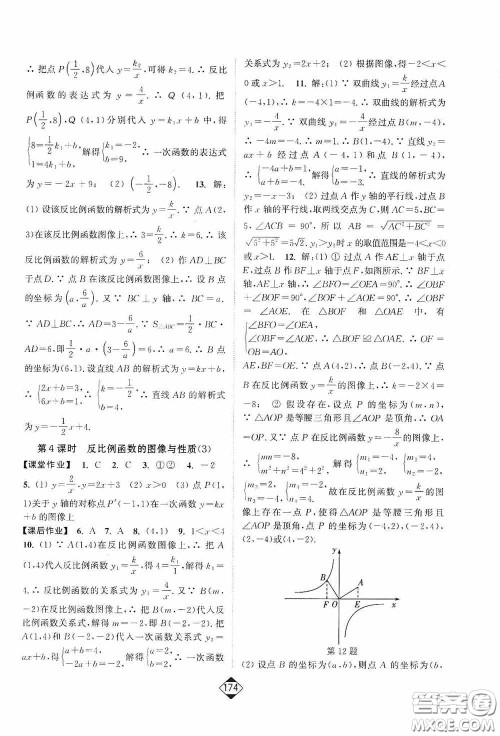 ∴ 把点 P(1/2,8)代入 y=k₂/x,可得 k₂=4. ∴ 反比
例函数的表达式为 y=4/x. ∴ Q (4,1). 把
P(1/2,8)、Q(4,1)分别代入 y=k₁x+b 中,得
{8=1/2k₁+b, 1=4k₁+b, 解得{k₁=-2, b=9. ∴ 一次函数的表达式
为 y=-2x+9; (2) (-1/2,-8). 13. 解:
(1) 设该反比例函数的解析式为 y=k/x. ∵ 点 A(2,
3)在该反比例函数图像上,∴ 3=k/2. ∴ k=6. ∴ 该
反比例函数的解析式为 y=6/x; (2) 作 AD⊥BC 于
点 D. ∵ 点 B 在该反比例函数图像上,∴ 设 B 点
的坐标为(a,6/a). 又∵ BC⊥y 轴,∴ BC=a.
∵ AD⊥BC,∴ AD=3-6/a. ∵ S△ABC=1/2BC·
AD=6. ∴ 即1/2·a·(3-6/a)=6. ∴ a=6. ∴ B 点
的坐标为(6,1). 设直线 AB 的解析式为 y=kx+b,
∴ {2x+b=3, 6x+b=1. ∴ {k=-1/2, b=4. ∴ 直线 AB 的解析式
为 y=-1/2x+4.
第 4 课时 反比例函数的图像与性质(3)
【课堂作业】 1. C 2. C 3. ①② 4. -2
5. (1) y=2/x,y=2x+3 (2) x>0 (3) 点 P(1,
1)关于 y 轴的对称点 P′(-1,1)在一次函数 y=kx+b
的图像上
【课后作业】 6. A 7. A 8. (4,1) 9. 1<x<4
10. (1) ∵ A(1,4)在反比例函数图像上,∴ 把 A(1,
4)代入反比例函数 y₁=k/x 得 4=k₁/1,解得 k₁=4.
∴ 反比例函数的关系式为 y₁=4/x. 又∵ B(m,
-2)在反比例函数图像上,∴ 把 B(m,-2)代入反
比例函数关系式,解得 m=-2,即 B(-2,-2). 把
A(1,4)和 B(-2,-2)代入一次函数关系式 y₂=
ax+b 得 {4=a+b, -2=-2a+b, 解得{a=2, b=2. ∴ 一次函数
关系式为 y₂=2x+2; (2) 根据图像,得-2<x<
0 或 x>1. 11. 解:(1) ∵ 双曲线 y=k/x 经过点 A
(-4,1),∴ k=-4×1=-4. ∴ 双曲线的解析式
为 y=-4/x. ∵ 双曲线 y=k/x 经过点 B(m,-4),
∴ -4m=-4. ∴ B(1,-4). ∵ 直线 y=
ax+b 经 过 点 A (-4,1) 和 点 B(1,-4),
∴ {-4a+b=1, a+b=-4. 解得{a=-1, b=-3. ∴ 直线的解析式为
y=-x-3; (2) 过点 A 作 y 轴的平行线,过点 B
作 x 轴的平行线,取两线交点为 C,则 AC=5,BC=
5,∵ ∠ACB=90°,∴ AB=√(AC²+BC²)=
√(5²+5²)=5√2. y₁>y₂时 x 的取值范围是-4<x<0
或 x>1. 12. 解:(1) ① 过点 A 作 AE⊥x 轴于点
E,过点 B 作 BF⊥x 轴于点 F,如图所示. ∵ BF⊥x
轴,AE⊥x 轴,∴ ∠BFO=∠OEA=90°,∴ ∠FBO+
∠BOF=90°,∠BOF+∠AOE=90°,∴ ∠FBO=
∠EOA. 在 △BOF 和 △OAE 中,有
{∠BFO=∠OEA, ∠FBO=∠EOA, ∴ △BOF≌△OAE. ∴ OF=
OB=AO.
AE,BF=OE. ∵ 点 A(4,2),∴ 点 B(-2,4). ∵ 点
B 在反比例函数 y=k/x 的图像上,∴ k=-2×4=
-8; ② 假设存在,设点 P 的坐标为(m,n),
∵ △AOP 是等腰三角形且∠AOP 是顶角,
∴ OP=OA. 又∵ 点 P 在反比例函数 y=-8/x 的图
像 上,∴ {mn=-8, m²+n²=4²+2², 解得 {m₁=2, n₁=-4, {m₂=4, n₂=-2,
{m₃=-2, n₃=4, {m₄=-4, n₄=2. 故在反比例函数的图
像 上 存 在 一 点 P,使 得 △AOP 是 等 腰 三 角 形 且
∠AOP 是顶角,点 P 的坐标为(-4,2)、(-2,4)、
(2,-4)或(4,-2);
y
B
A
F
O
E
x
第 12 题
(2) 设点 B 的坐标为(a,b),则点 A 的坐标为(b,
174
答案圈
MXQE.COM